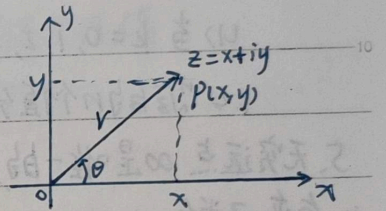 y
z=x+iy
y
P(x,y)
r
θ
0
x
x
10